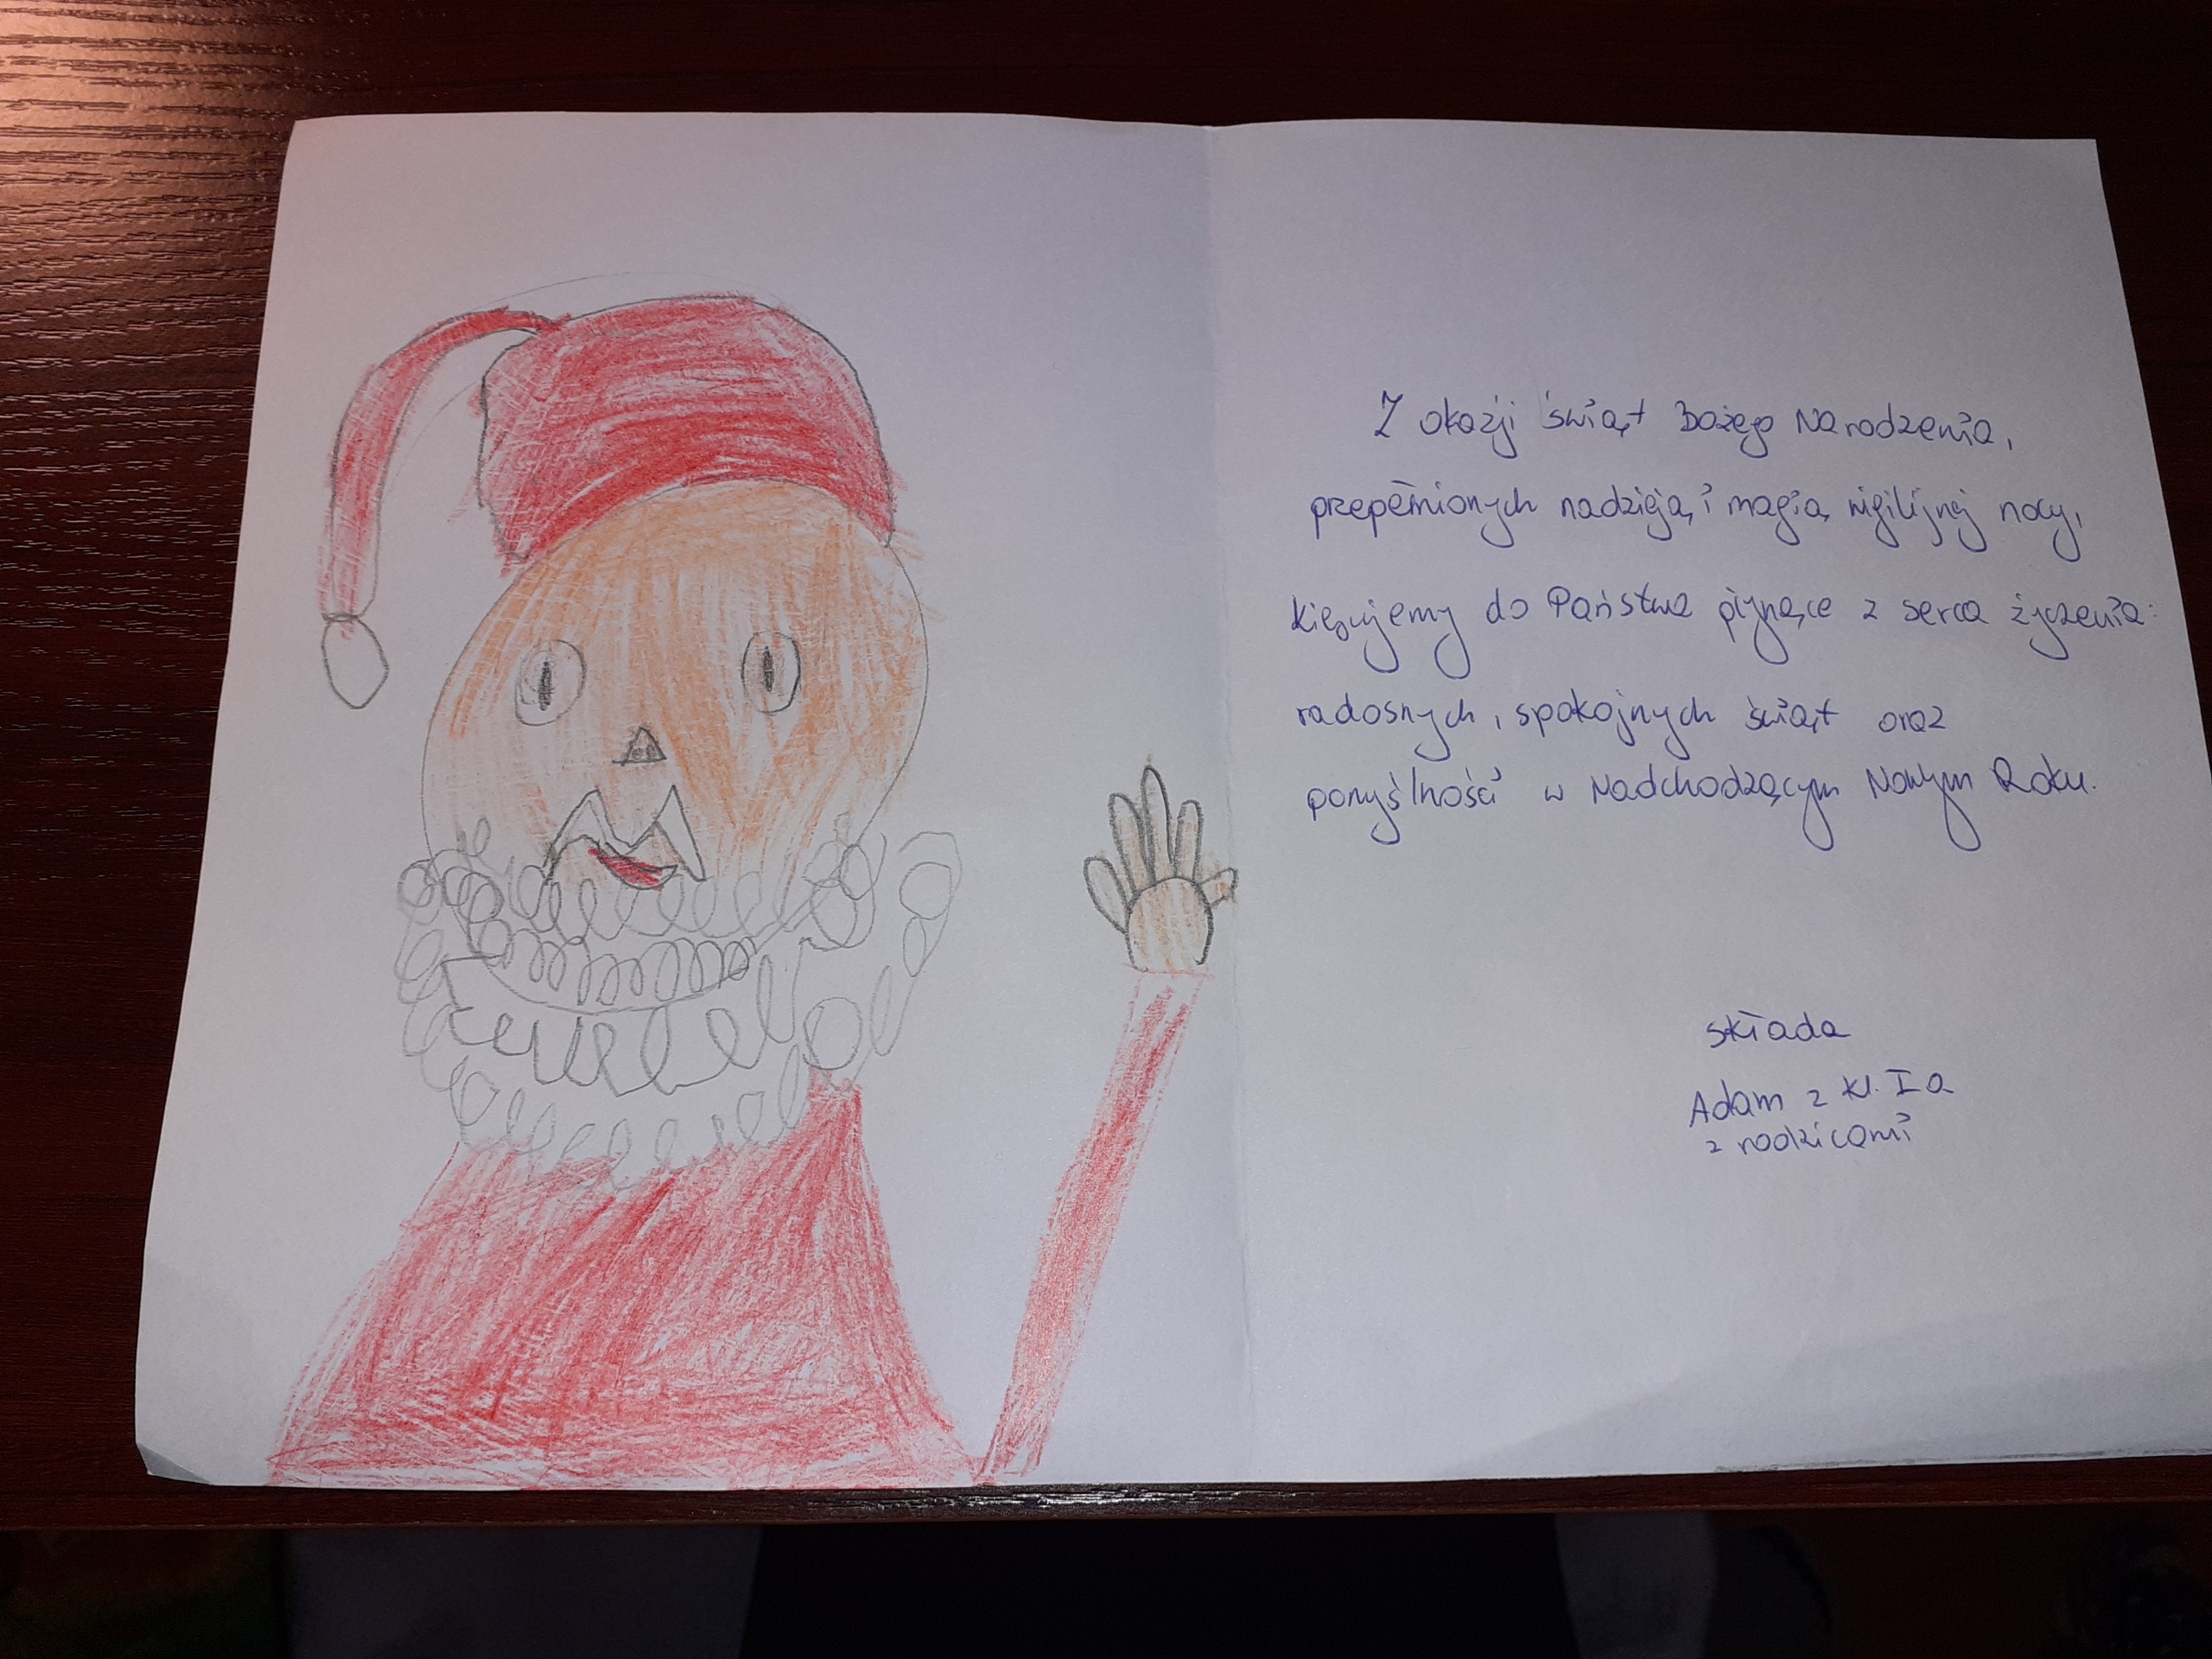 Z okazji świąt Bożego Narodzenia,
przepełnionych nadzieją i magią wigilijnej nocy,
kierujemy do Państwa płynące z serca życzenia:
radosnych, spokojnych świąt oraz
pomyślności w Nadchodzącym Nowym Roku.
składa
Adam z kl. I a
z rodzicami